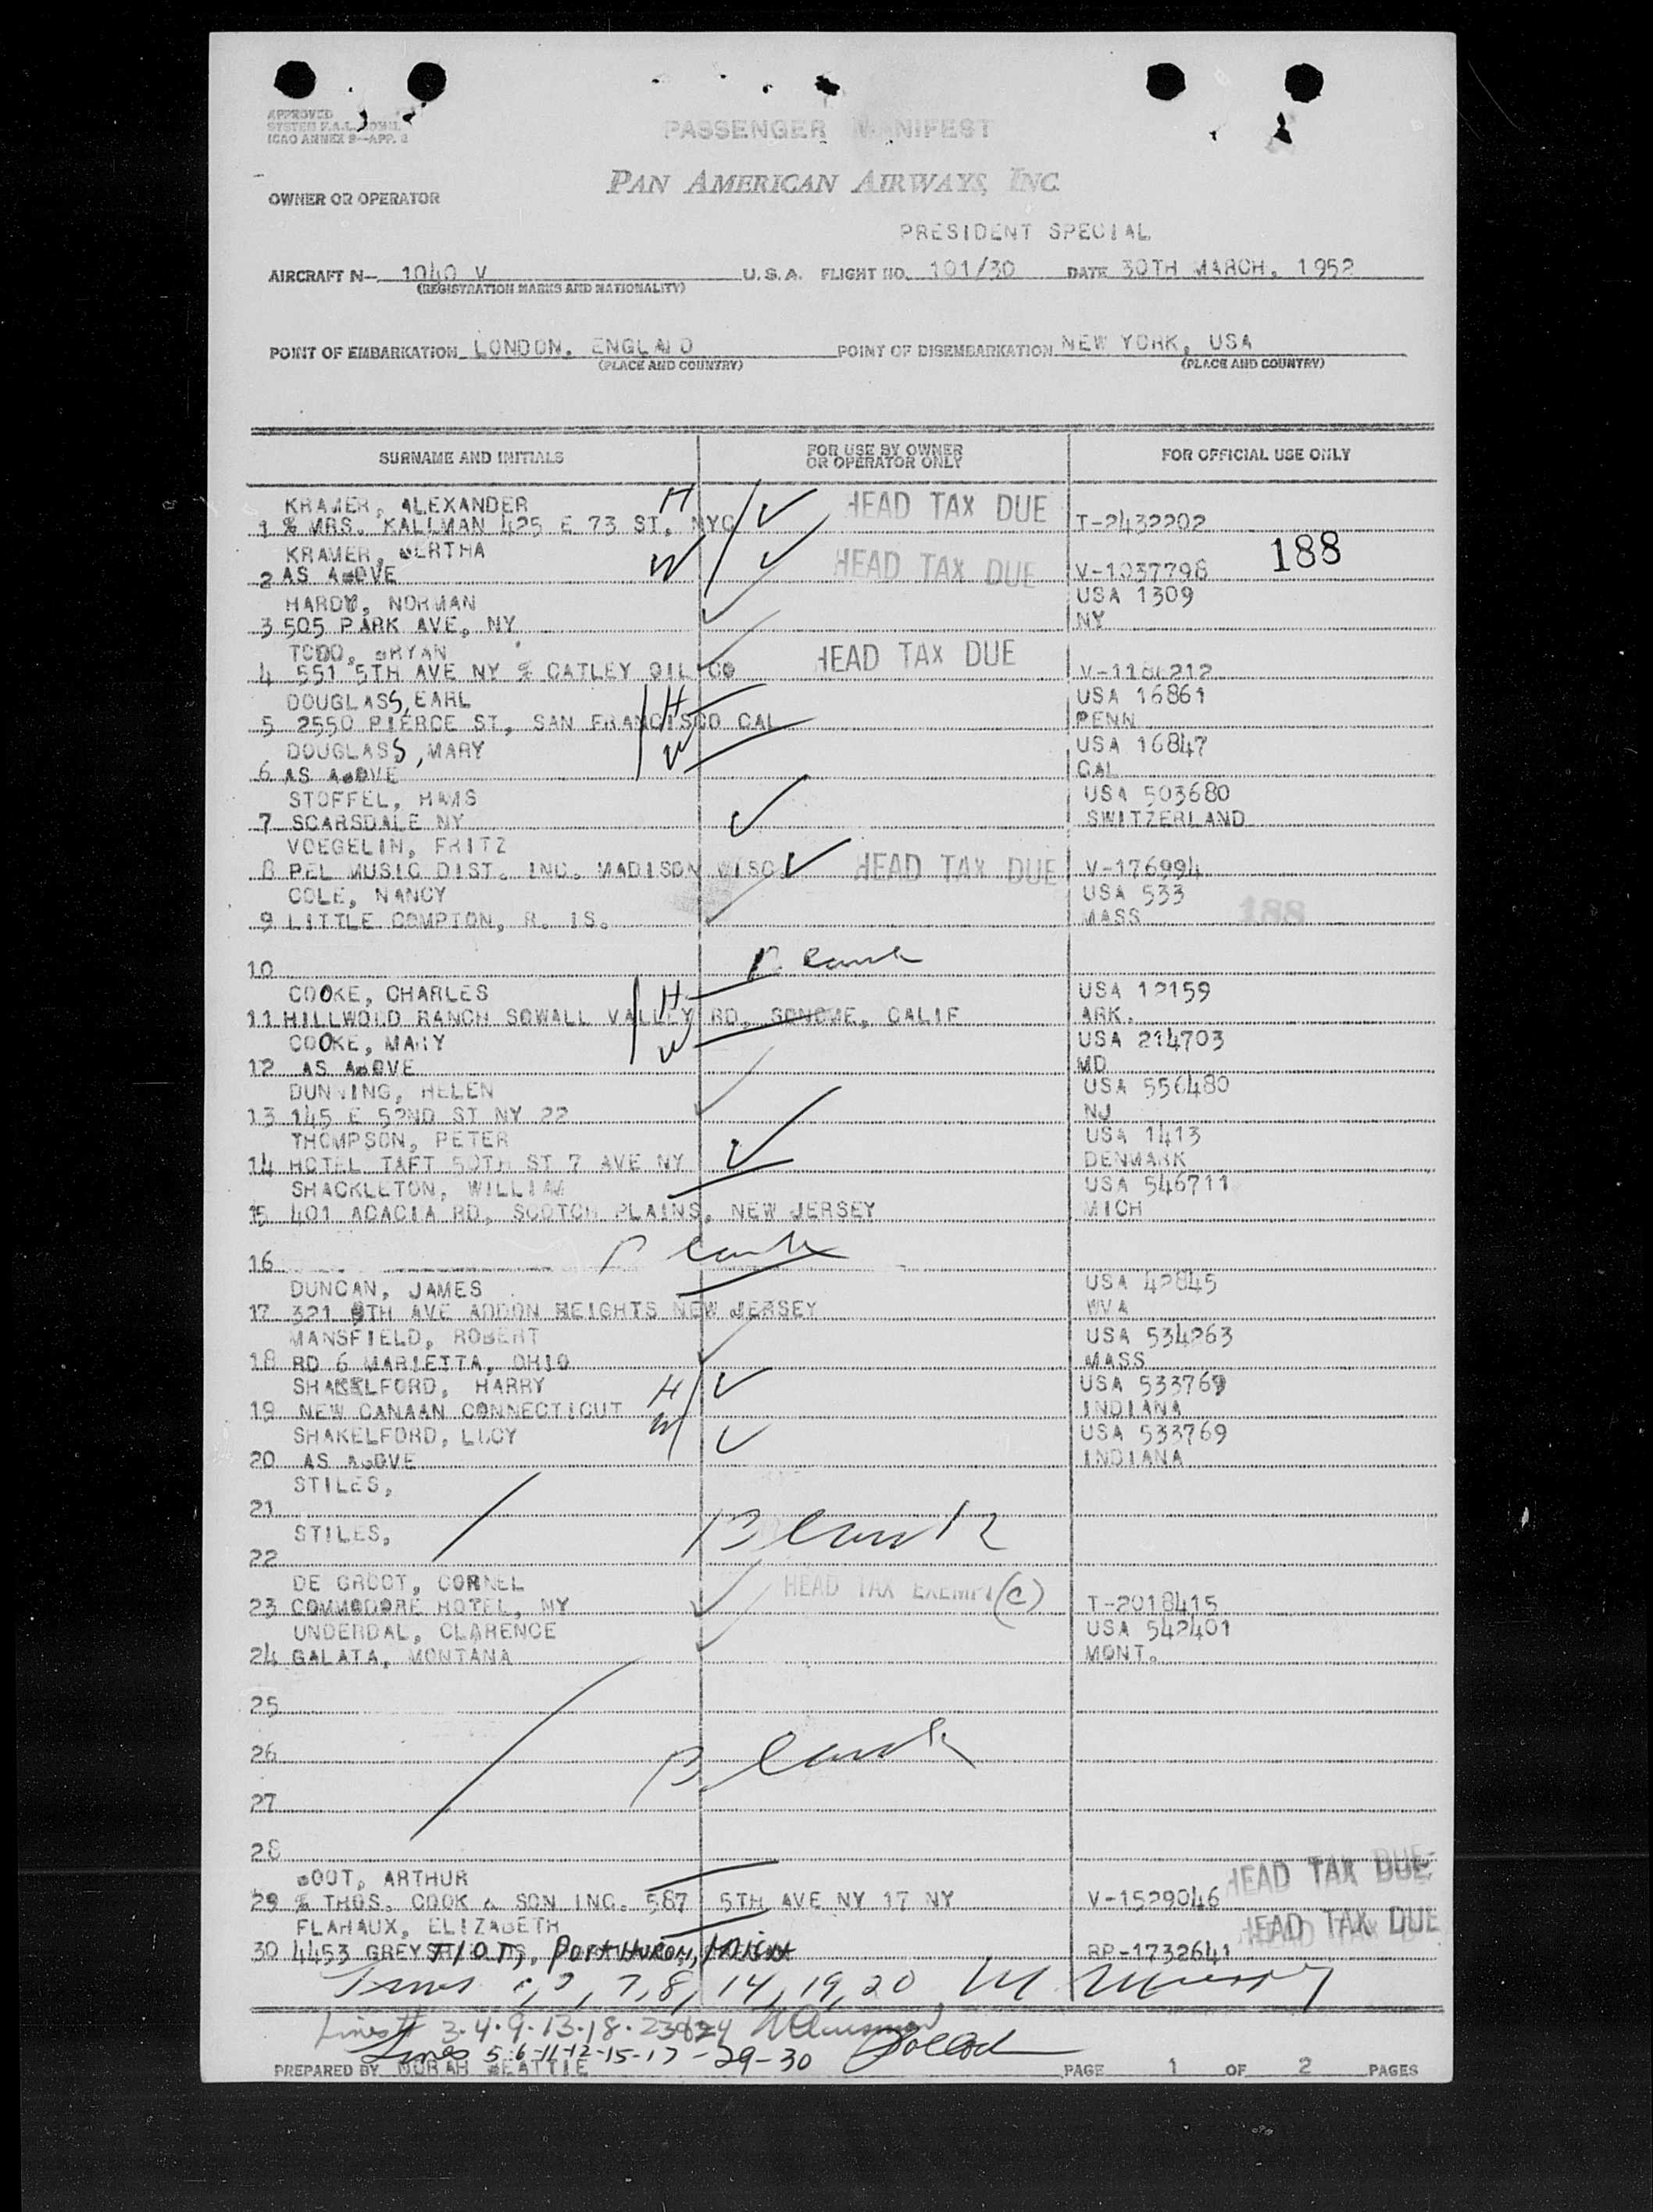 APPROVED
SYSTEM F.A.L.
ICAO ANNEX 9—APP. 3
PASSENGER MANIFEST
PAN AMERICAN AIRWAYS, INC.
OWNER OR OPERATOR
PRESIDENT SPECIAL
AIRCRAFT N— 1040 V U.S.A. FLIGHT NO. 101/30 DATE 30TH MARCH, 1952
(REGISTRATION MARKS AND NATIONALITY)
POINT OF EMBARKATION LONDON, ENGLAND POINT OF DISEMBARKATION NEW YORK, USA
(PLACE AND COUNTRY) (PLACE AND COUNTRY)
SURNAME AND INITIALS FOR USE BY OWNER OR OPERATOR ONLY FOR OFFICIAL USE ONLY
KRAMER, ALEXANDER H HEAD TAX DUE
1 % MRS. KALLMAN 425 E 73 ST, NYC T-2432202
KRAMER, BERTHA 188
2 AS ABOVE W HEAD TAX DUE V-1037798
HARDY, NORMAN USA 1309
3 505 PARK AVE, NY NY
TODD, BRYAN HEAD TAX DUE
4 551 5TH AVE NY % CATLEY OIL CO
DOUGLASS, EARL H USA 16861
5 2550 PIERCE ST, SAN FRANCISCO CAL PENN
DOUGLASS, MARY W USA 16847
6 AS ABOVE CAL
STOFFEL, HANS USA 503680
7 SCARSDALE NY SWITZERLAND
VOEGELIN, FRITZ
8 PEL MUSIC DIST. INC. MADISON WISC HEAD TAX DUE V-176994
COLE, NANCY USA 533
9 LITTLE COMPTON, R. IS. MASS 188
10 Blank
COOKE, CHARLES H USA 12159
11 HILLWOLD RANCH SOWALL VALLEY RD, SONOME, CALIF ARK.
COOKE, MARY W USA 214703
12 AS ABOVE MD
DUNNING, HELEN USA 556480
13 145 E 52ND ST NY 22 NJ
THOMPSON, PETER USA 1413
14 HOTEL TAFT 50TH ST 7 AVE NY DENMARK
SHACKLETON, WILLIAM USA 546711
15 401 ACACIA RD, SCOTCH PLAINS, NEW JERSEY MICH
16 Blank
DUNCAN, JAMES USA 42845
17 321 9TH AVE ADDON HEIGHTS NEW JERSEY WVA
MANSFIELD, ROBERT USA 534263
18 RD 6 MARIETTA, OHIO MASS
SHAKELFORD, HARRY H USA 533769
19 NEW CANAAN CONNECTICUT INDIANA
SHAKELFORD, LUCY W USA 533769
20 AS ABOVE INDIANA
STILES,
21
STILES, Blank
22
DE GROOT, CORNEL HEAD TAX EXEMPT (C)
23 COMMODORE HOTEL, NY T-2018415
UNDERDAL, CLARENCE USA 542401
24 GALATA, MONTANA MONT.
25
26 Blank
27
28
BOOT, ARTHUR HEAD TAX DUE
29 % THOS. COOK & SON INC. 587 5TH AVE NY 17 NY V-1529046
FLAHAUX, ELIZABETH HEAD TAX DUE
30 4453 GREY PORT HURON, MICH RP-1732641
Lines 7, 8, 14, 19, 20
Lines # 3-4-9-13-18-23&24
Lines 5-6-11-12-15-17-29-30
PREPARED BY NORAH BEATTIE PAGE 1 OF 2 PAGES